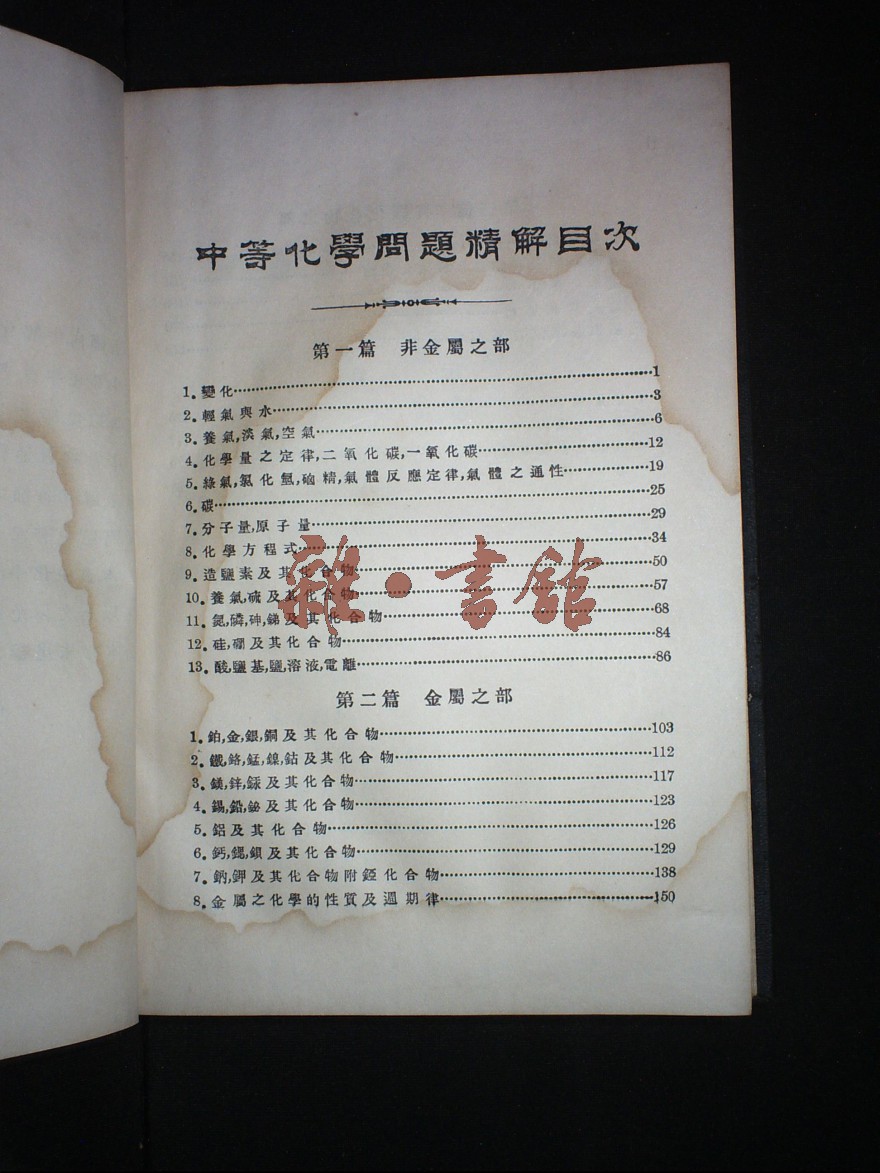 中等化學問題精解目次
第一篇 非金屬之部
1. 變化……1
2. 輕氣與水……3
3. 養氣,淡氣,空氣……6
4. 化學量之定律,二氧化碳,一氧化碳……12
5. 綠氣,氯化氫,硇精,氣體反應定律,氣體之通性……19
6. 碳……25
7. 分子量,原子量……29
8. 化學方程式……34
9. 造鹽素及其化合物……50
10. 養氣,硫及其化合物……57
11. 氮,磷,砷,銻及其化合物……68
12. 硅,硼及其化合物……84
13. 酸,鹽基,鹽,溶液,電離……86
第二篇 金屬之部
1. 鉑,金,銀,銅及其化合物……103
2. 鐵,鉻,錳,鎳,鈷及其化合物……112
3. 鎂,鋅,汞及其化合物……117
4. 錫,鉛,鉍及其化合物……123
5. 鋁及其化合物……126
6. 鈣,鍶,鋇及其化合物……129
7. 鈉,鉀及其化合物附錏化合物……138
8. 金屬之化學的性質及週期律……150
雜·書館